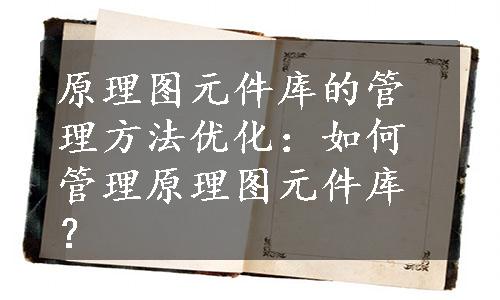 原理图元件库的管
理方法优化：如何
管理原理图元件库
？